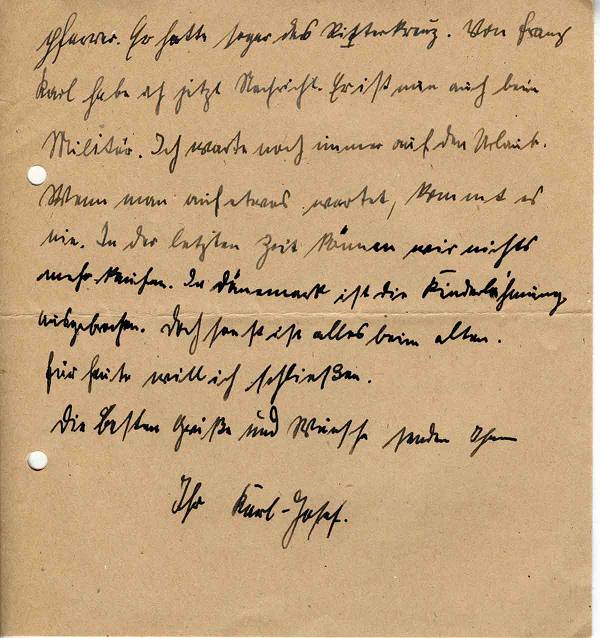 pfarrer. Er hatte sogar das Ritterkreuz. Von Franz
Karl habe ich jetzt Nachricht. Er ist nun auch beim
Militär. Ich warte noch immer auf den Urlaub.
Wenn man auf etwas wartet, kommt es
nie. In der letzten Zeit können wir nichts
mehr kaufen. In Dänemark ist die Kinderlähmung
ausgebrochen. Doch sonst ist alles beim alten.
Für heute will ich schließen.
Die besten Grüße und Wünsche senden Ihnen
Ihr Karl-Josef.